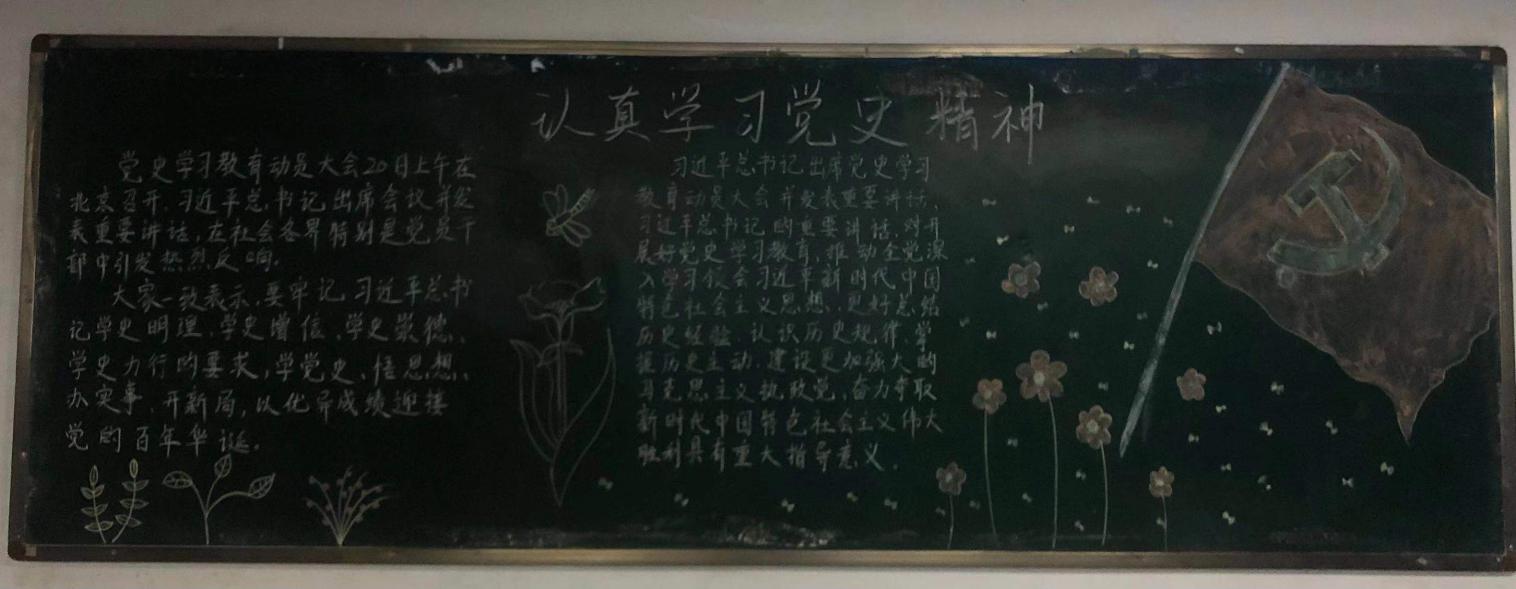 认真学习党史精神
党史学习教育动员大会20日上午在
北京召开,习近平总书记出席会议并发
表重要讲话,在社会各界特别是党员干
部中引发热烈反响。
大家一致表示,要牢记习近平总书
记学史明理、学史增信、学史崇德、
学史力行的要求,学党史、悟思想、
办实事、开新局,以优异成绩迎接
党的百年华诞。
习近平总书记出席党史学习
教育动员大会并发表重要讲话。
习近平总书记的重要讲话,对开
展好党史学习教育,推动全党深
入学习领会习近平新时代中国
特色社会主义思想,更好总结
历史经验、认识历史规律、掌
握历史主动,建设更加强大的
马克思主义执政党,奋力夺取
新时代中国特色社会主义伟大
胜利具有重大指导意义。